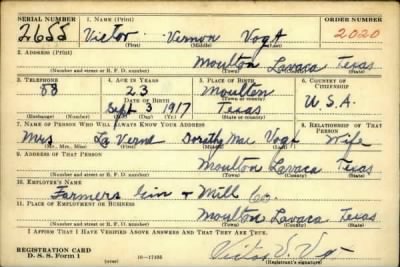 SERIAL NUMBER 1. NAME (Print) ORDER NUMBER
2655 Victor Vernon Vogt 2020
(First) (Middle) (Last)
2. ADDRESS (Print)
Moulton Lavaca Texas
(Number and street or R. F. D. number) (Town) (County) (State)
3. TELEPHONE 4. AGE IN YEARS 5. PLACE OF BIRTH 6. COUNTRY OF CITIZENSHIP
58 23 Moulton
DATE OF BIRTH (Town or county)
Sept 3 1917 Texas U.S.A.
(Exchange) (Number) (Mo.) (Day) (Yr.) (State or country)
7. NAME OF PERSON WHO WILL ALWAYS KNOW YOUR ADDRESS 8. RELATIONSHIP OF THAT PERSON
Mrs La Verne Dorothy Mae Vogt Wife
(Mr., Mrs., Miss) (First) (Middle) (Last)
9. ADDRESS OF THAT PERSON
Moulton Lavaca Texas
(Number and street or R. F. D. number) (Town) (County) (State)
10. EMPLOYER'S NAME
Farmers Gin + Mill Co.
11. PLACE OF EMPLOYMENT OR BUSINESS
Moulton Lavaca Texas
(Number and street or R. F. D. number) (Town) (County) (State)
I AFFIRM THAT I HAVE VERIFIED ABOVE ANSWERS AND THAT THEY ARE TRUE.
REGISTRATION CARD
D. S. S. Form 1 16—17105 Victor V. Vogt
(Registrant's signature)